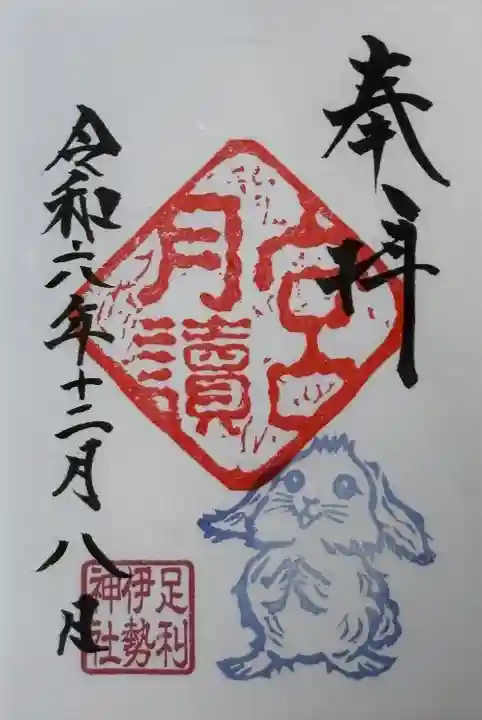 奉拝
月讀宮
令和六年十二月八日
足利
伊勢
神社